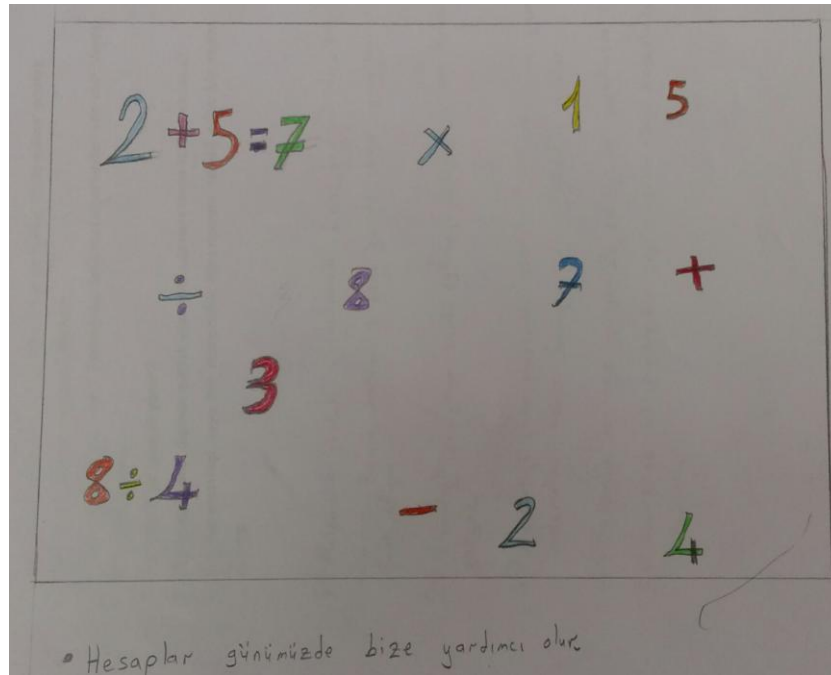 2+5=7 × 1 5
÷ 8 7 +
3
8÷4 - 2 4
• Hesaplar günümüzde bize yardımcı olur